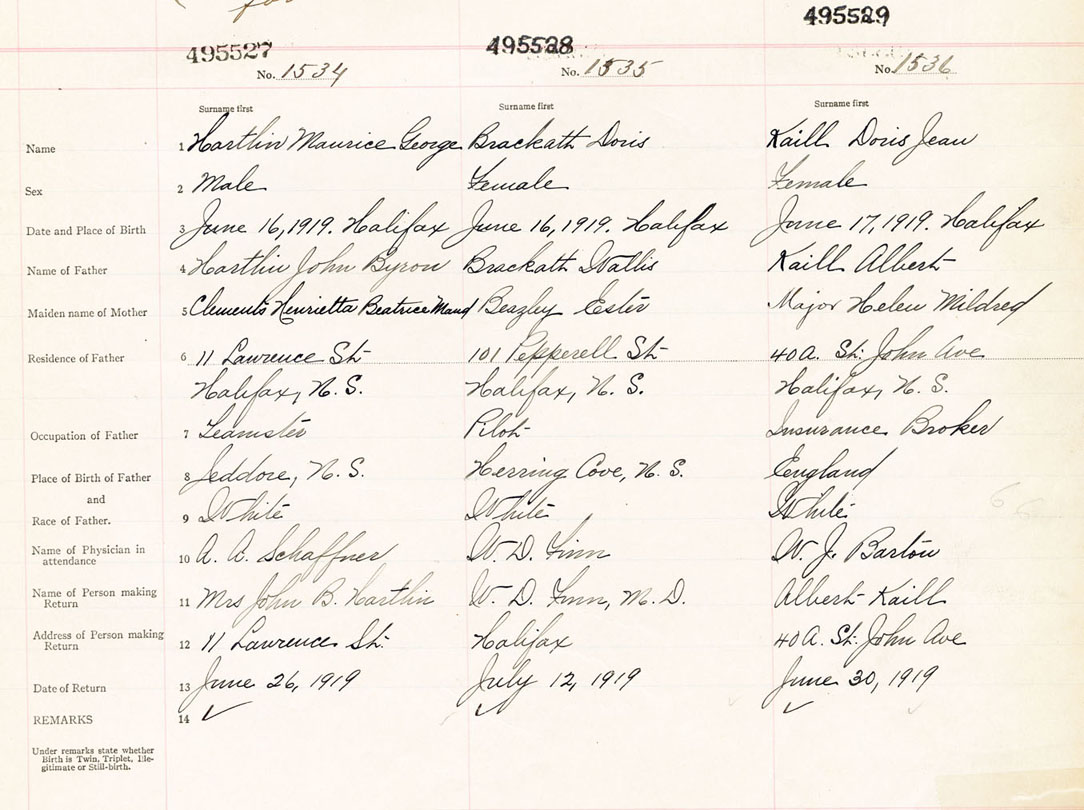 for
495527 495528 495529
No. 1534 No. 1535 No. 1536
Surname first Surname first Surname first
Name 1 Hartlin Maurice George Brackath Doris Kaill Doris Jean
Sex 2 Male Female Female
Date and Place of Birth 3 June 16, 1919. Halifax June 16, 1919. Halifax June 17, 1919. Halifax
Name of Father 4 Hartlin John Byron Brackath Wallis Kaill Albert
Maiden name of Mother 5 Clements Henrietta Beatrice Maud Beazley Ester Major Helen Mildred
Residence of Father 6 11 Lawrence St. 101 Pepperell St. 40A. St. John Ave
Halifax, N. S. Halifax, N. S. Halifax, N. S.
Occupation of Father 7 Teamster Pilot Insurance Broker
Place of Birth of Father 8 Jeddore, N. S. Herring Cove, N. S. England
and
Race of Father. 9 White White White
Name of Physician in attendance 10 A. A. Schaffner W. D. Finn W. J. Barton
Name of Person making Return 11 Mrs John B. Hartlin W. D. Finn, M. D. Albert Kaill
Address of Person making Return 12 11 Lawrence St. Halifax 40A. St. John Ave
Date of Return 13 June 26, 1919 July 12, 1919 June 30, 1919
REMARKS 14 ✓ ✓ ✓
Under remarks state whether
Birth is Twin, Triplet, Ille-
gitimate or Still-birth.